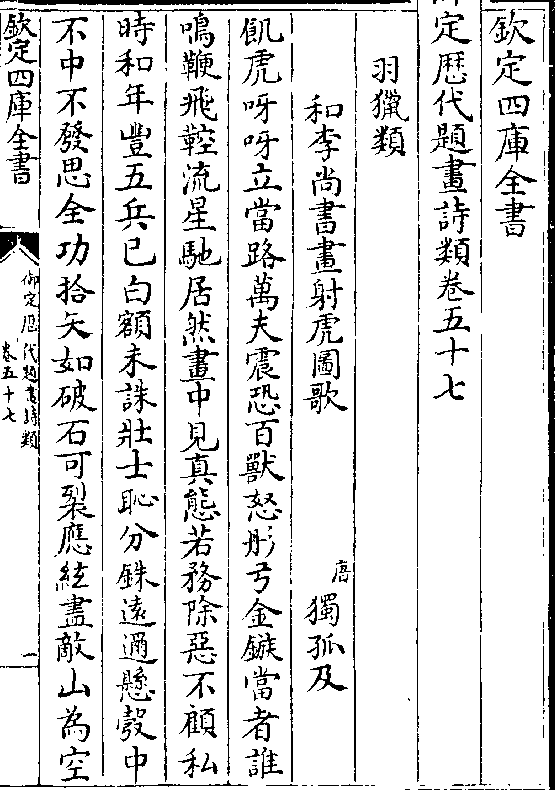 欽定四庫全書
御定歴代題畫詩類卷五十七
羽獵類
和李尚書畫射虎圖歌
唐 獨孤及
飢虎呀呀立當路萬夫震恐百獸怒彤弓金鏃當者誰
鳴鞭飛鞚流星馳居然畫中見真態若務除惡不顧私
時和年豐五兵已白額未誅壯士恥分銖遠邇懸彀中
不中不發思全功拾矢如破石可裂應絃盡敵山為空
欽定四庫全書
御定歴代題畫詩類
卷五十七
一